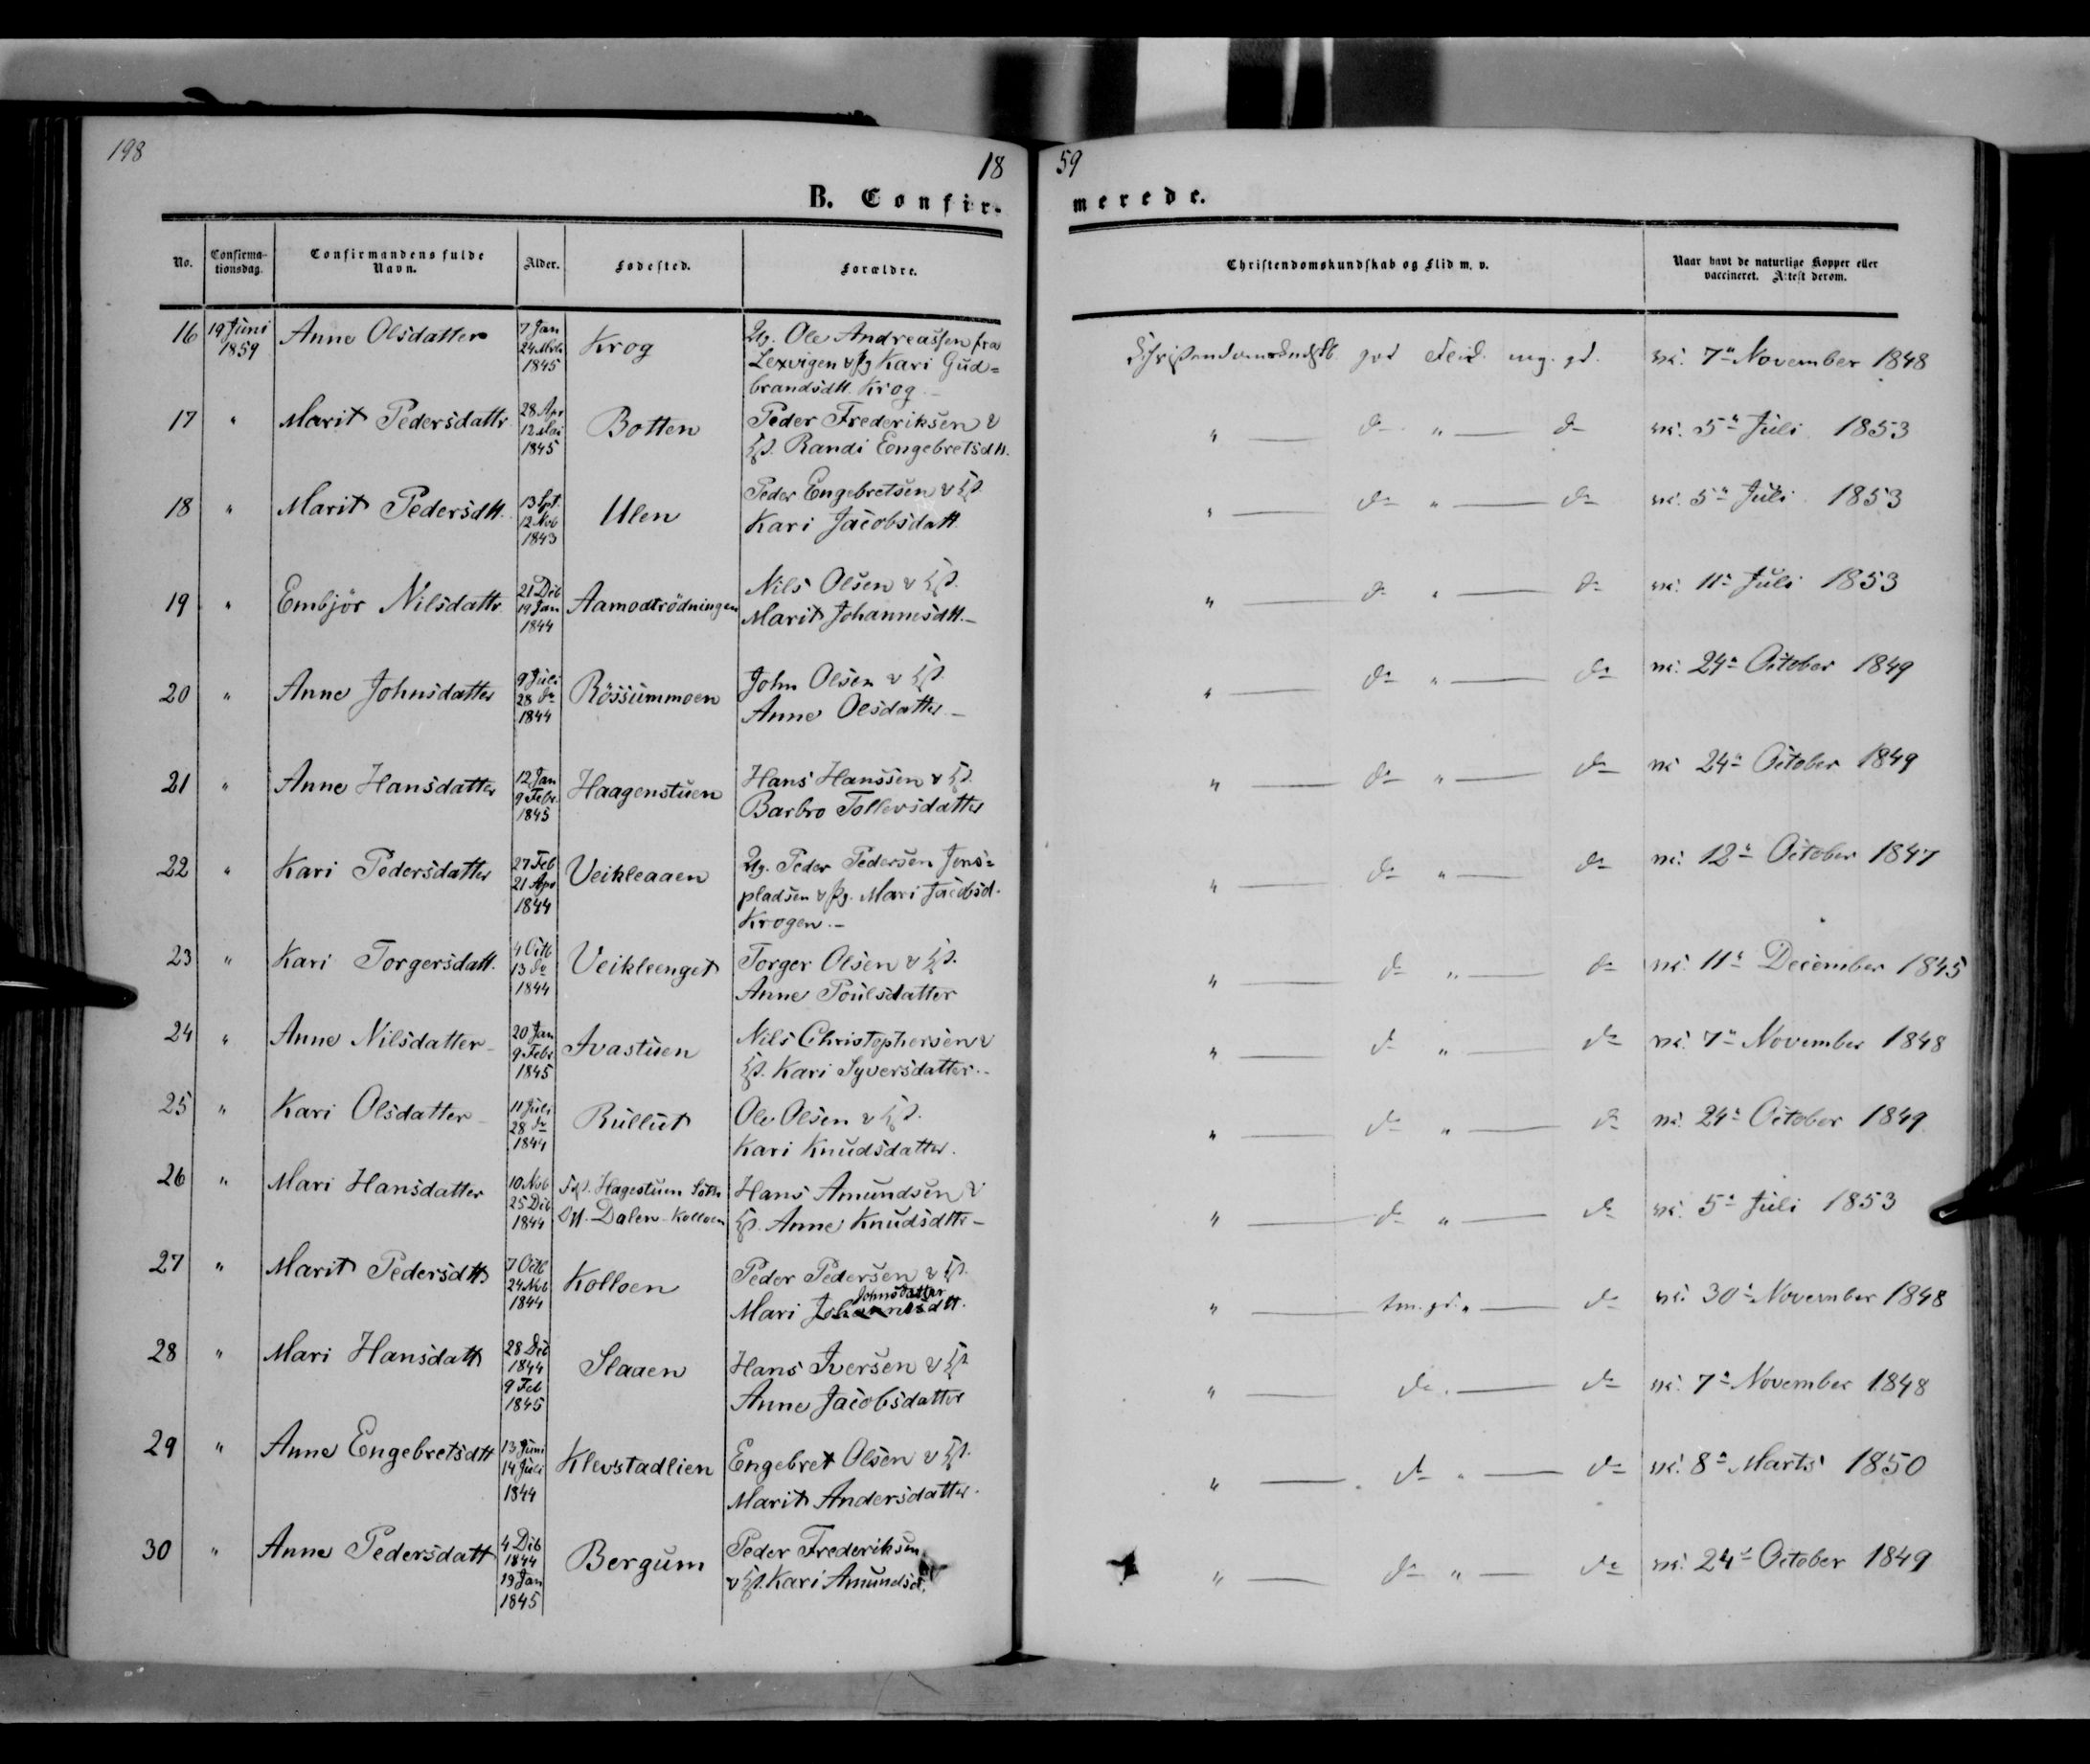 198
18 59
B. Confir- merede.
No. Confirma-tionsdag. Confirmandens fulde Navn. Alder. Fødested. Forældre. Christendomskundskab og Flid m. v. Naar havt de naturlige Kopper eller vaccineret. Attest derom.
16 19 Juni 1859 Anne Olsdatter 7 Jan 24 Mrts 1845 Krog Ug. Ole Andreassen fra
Lexvigen & Pg Kari Gud=
brandsdtt. Krog.- god Flid mg. gd. vac. 7de November 1848
17 " Marit Pedersdattr. 28 Apr 12 Mai 1845 Botten Peder Frederiksen &
Hst. Randi Engebretsdtt. " — do " — do vac. 5te Juli 1853
18 " Marit Pedersdtt. 13 Spt. 12 Nov 1843 Ulen Peder Engebretsen & Hst.
Kari Jacobsdatt. " — do " — do vac. 5te Juli 1853
19 " Embjör Nilsdattr. 21 Dec 19 Jan 1844 Aamodtrödningen Nils Olsen & Hst.
Marit Johannesdtt.- " — do " — do vac. 11te Juli 1853
20 " Anne Johnsdatter 9 Juli 28 do 1844 Rössummoen John Olsen & Hst.
Anne Olsdatter.- " — do " — do vac. 24de October 1849
21 " Anne Hansdatter 12 Jan 9 Febr. 1845 Haagenstuen Hans Hanssen & Hst.
Barbro Tollevsdatter " — do " — do vac 24de October 1849
22 " Kari Pedersdatter 27 Feb 21 Apr 1844 Veikleaaen Ug. Peder Pedersen Jens=
pladsen & Pg. Mari Jacobsd.
Krogen.- " — do " — do vac. 12te October 1847
23 " Kari Torgersdatt. 4 Octb 13 do 1844 Veikleenget Torger Olsen & Hst.
Anne Poulsdatter " — do " — do vac. 11te December 1845
24 " Anne Nilsdatter- 20 Jan 9 Febr 1845 Ivastuen Nils Christophersen &
Hst. Kari Syversdatter.- " — do " — do vac. 7de November 1848
25 " Kari Olsdatter- 11 Juli 28 do 1844 Rullut Ole Olsen & Hst.
Kari Knudsdatter. " — do " — do vac. 24de October 1849
26 " Mari Hansdatter 10 Nov 25 Dec 1844 Hagestuen
Dalen Kolloen Hans Amundsen &
Hst. Anne Knudsdttr- " — do " — do vac. 5te Juli 1853
27 " Marit Pedersdtt 7 Octb 24 Nvb 1844 Kolloen Peder Pedersen & Hst.
Johnsdatter
Mari Johannesdtt. " — tm. gd. " — do vac. 30te November 1848
28 " Mari Hansdatt 28 Dec 1844 9 Feb 1845 Slaaen Hans Iversen & Hst
Anne Jacobsdatter " — do " — do vac. 7de November 1848
29 " Anne Engebretsdtt 13 Juni 14 Juli 1844 Klevstadlien Engebret Olsen & Hst.
Marit Andersdatter. " — do " — do vac. 8de Marts 1850
30 " Anne Pedersdatt 4 Dcb 1844 19 Jan 1845 Bergum Peder Frederiksen
& Hst. Kari Amundsd. " — do " — do vac. 24de October 1849